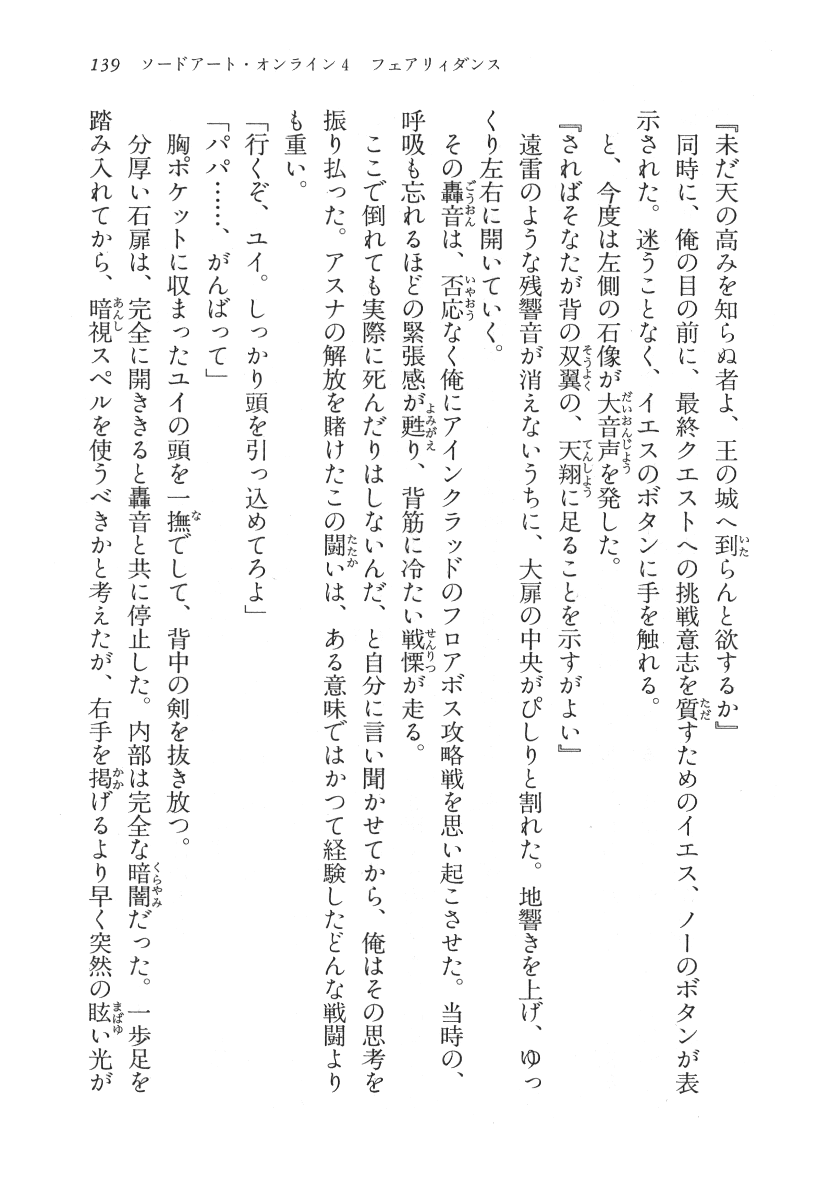 139 ソードアート・オンライン4 フェアリィダンス
『未だ天の高みを知らぬ者よ、王の城へ到らんと欲するか』
同時に、俺の目の前に、最終クエストへの挑戦意志を質すためのイエス、ノーのボタンが表
示された。迷うことなく、イエスのボタンに手を触れる。
と、今度は左側の石像が大音声を発した。
『さればそなたが背の双翼の、天翔に足ることを示すがよい』
遠雷のような残響音が消えないうちに、大扉の中央がぴしりと割れた。地響きを上げ、ゆっ
くり左右に開いていく。
その轟音は、否応なく俺にアインクラッドのフロアボス攻略戦を思い起こさせた。当時の、
呼吸も忘れるほどの緊張感が甦り、背筋に冷たい戦慄が走る。
ここで倒れても実際に死んだりはしないんだ、と自分に言い聞かせてから、俺はその思考を
振り払った。アスナの解放を賭けたこの闘いは、ある意味ではかつて経験したどんな戦闘より
も重い。
「行くぞ、ユイ。しっかり頭を引っ込めてろよ」
「パパ……、がんばって」
胸ポケットに収まったユイの頭を一撫でして、背中の剣を抜き放つ。
分厚い石扉は、完全に開ききると轟音と共に停止した。内部は完全な暗闇だった。一歩足を
踏み入れてから、暗視スペルを使うべきかと考えたが、右手を掲げるより早く突然の眩い光が